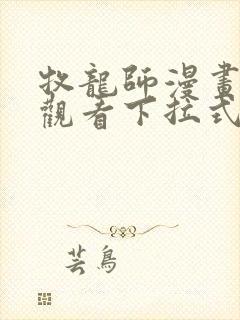 牧龍師漫畫
觀看下拉式
芸鳥